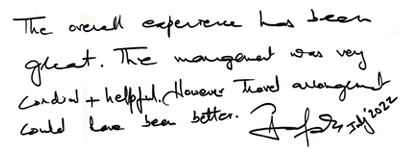 The overall experience has been
great. The management was very
cordial + helpful. However Travel arrangement
could have been better. July'2022